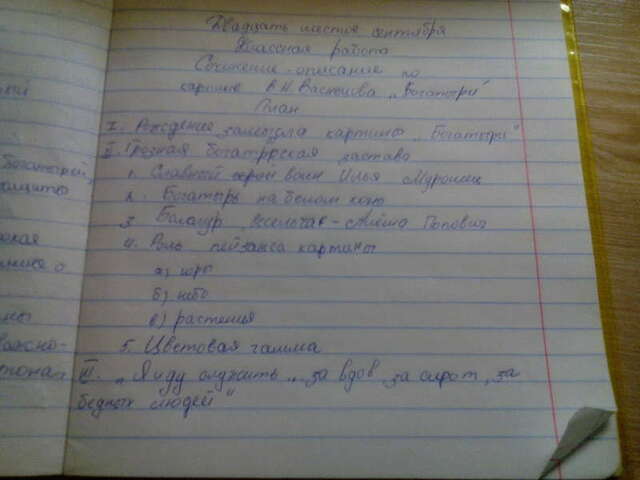 Двадцать шестое сентября
Классная работа
Сочинение-описание по
картине В.М. Васнецова „Богатыри"
План
I. Рождение замысла картины „Богатыри"
II. Грозная богатырская застава
1. Славный герой воин Илья Муромец
2. Богатырь на белом коне
3. Балагур, весельчак - Алёша Попович
4. Роль пейзажа картины
а) горы
б) небо
в) растения
5. Цветовая гамма
III. „Я иду служить за вдов, за сирот, за
бедных людей"
богатырей,